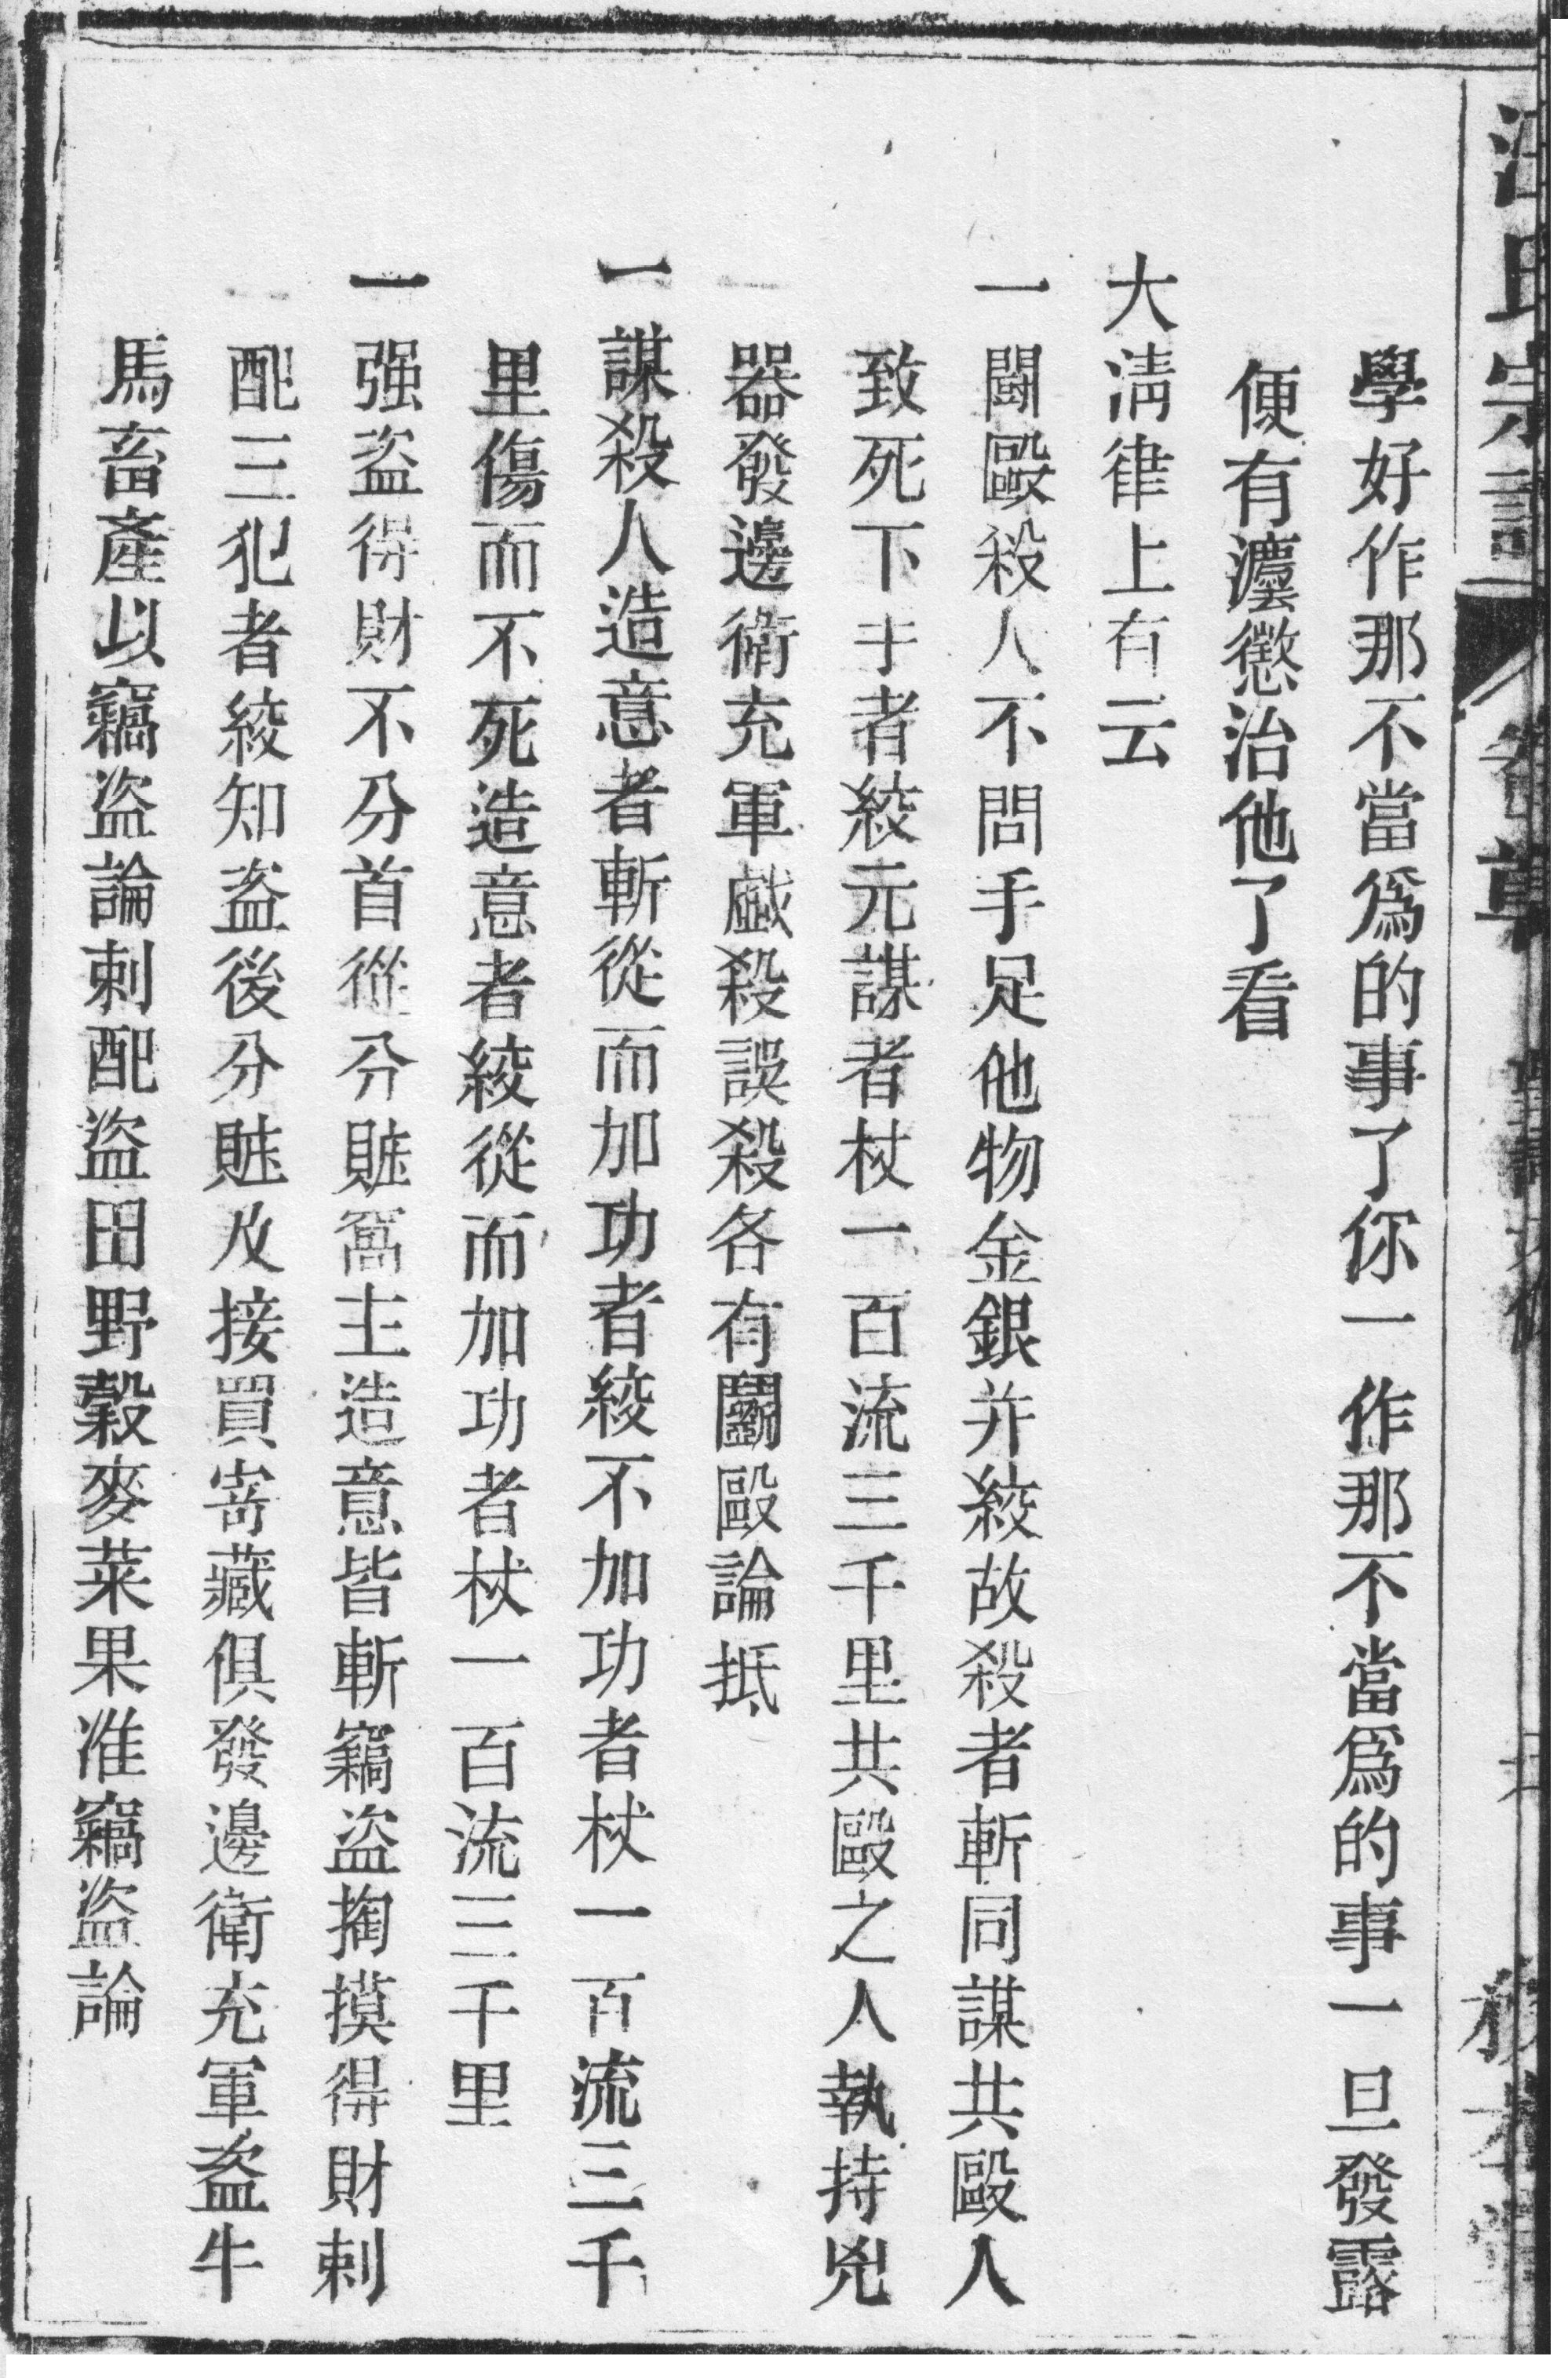 汪氏宗譜
學好作那不當爲的事了你一作那不當爲的事一旦發露
便有灋懲治他了看
大淸律上有云
一鬭毆殺人不問手足他物金銀并絞故殺者斬同謀共毆人
致死下手者絞元謀者杖一百流三千里共毆之人執持兇
器發邊衛充軍戲殺誤殺各有鬭毆論抵
一謀殺人造意者斬從而加功者絞不加功者杖一百流三千
里傷而不死造意者絞從而加功者杖一百流三千里
一强盗得財不分首從分賍窩主造意皆斬竊盗掏摸得財刺
配三犯者絞知盗後分賍及接買寄藏俱發邊衛充軍盗牛
馬畜產以竊盗論刺配盗田野穀麥菜果准竊盗論